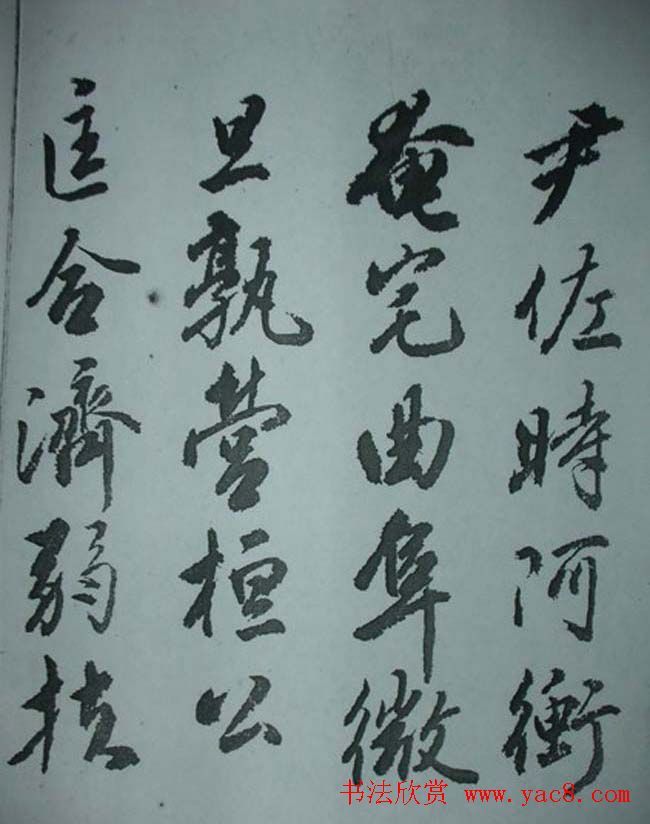 尹佐時阿衡
奄宅曲阜微
旦孰營桓公
匡合濟弱扶
书法欣赏 www.yac8.com